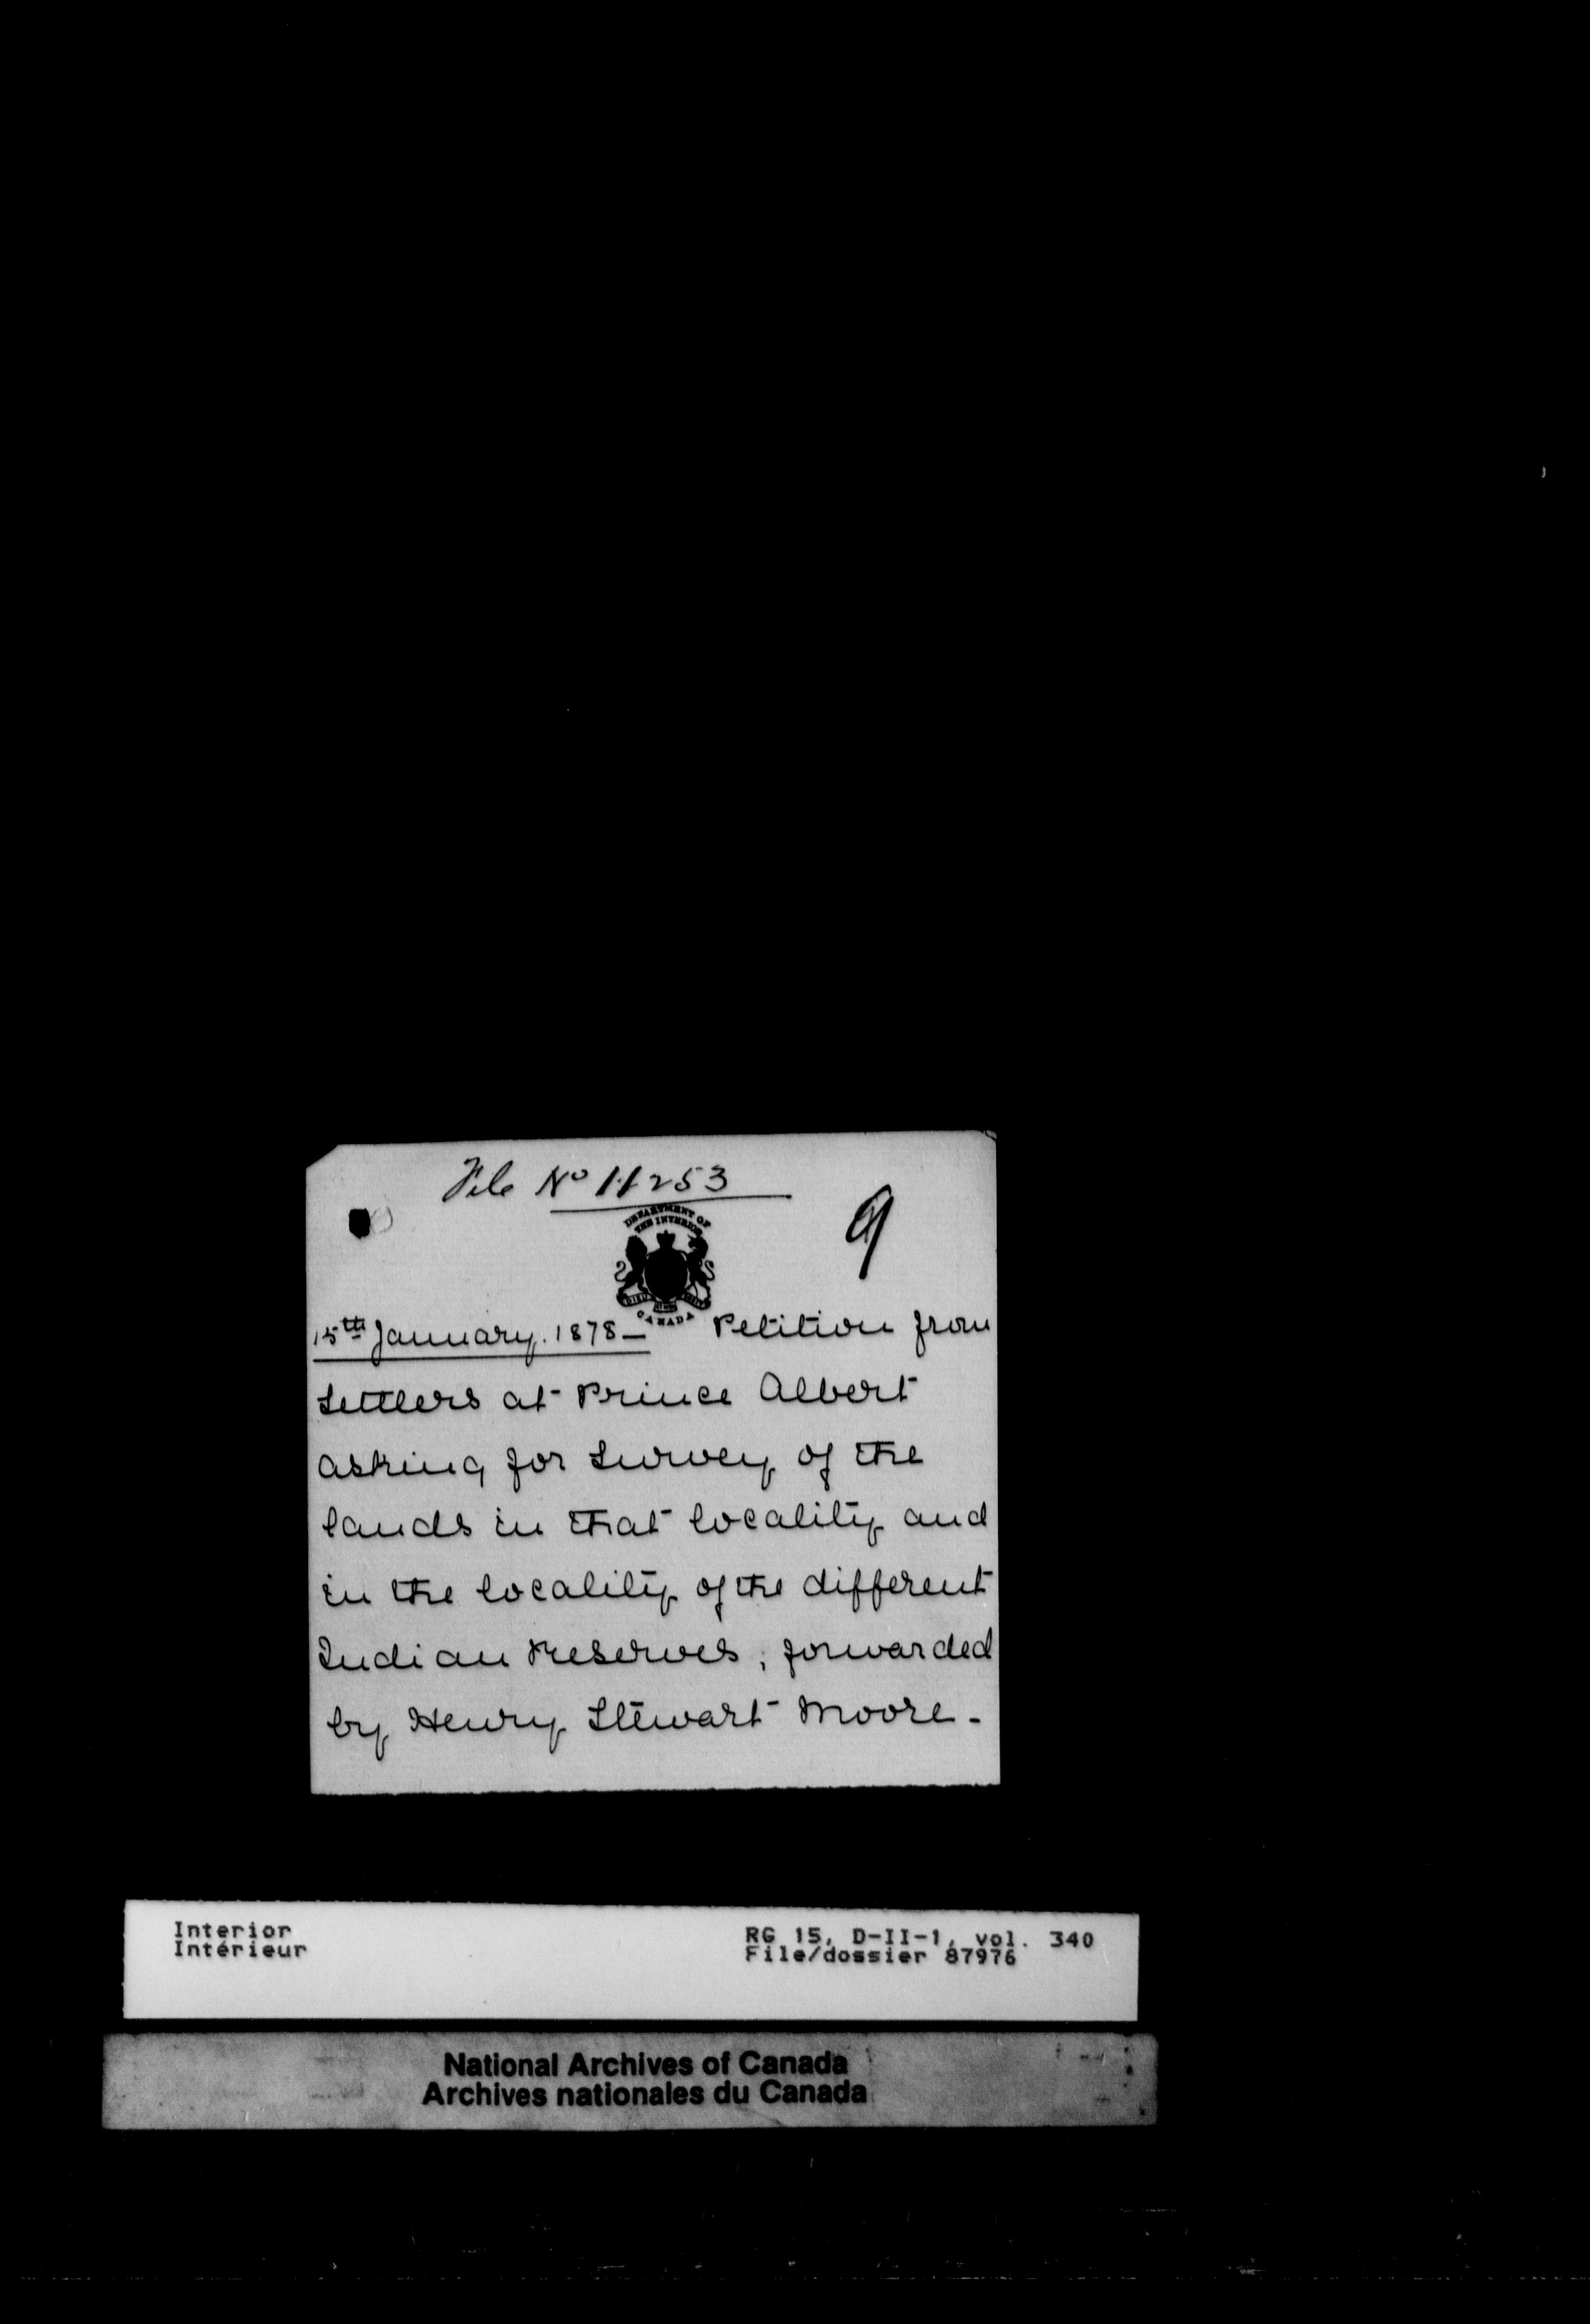 File No 11253
9
DEPARTMENT OF
THE INTERIOR
CANADA
15th January. 1878 - Petition from
Settlers at Prince Albert
asking for Survey of the
lands in that locality and
in the locality of the different
Indian Reserves, forwarded
by Henry Stewart Moore -
Interior
Intérieur
RG 15, D-II-1, vol. 340
File/dossier 87976
National Archives of Canada
Archives nationales du Canada